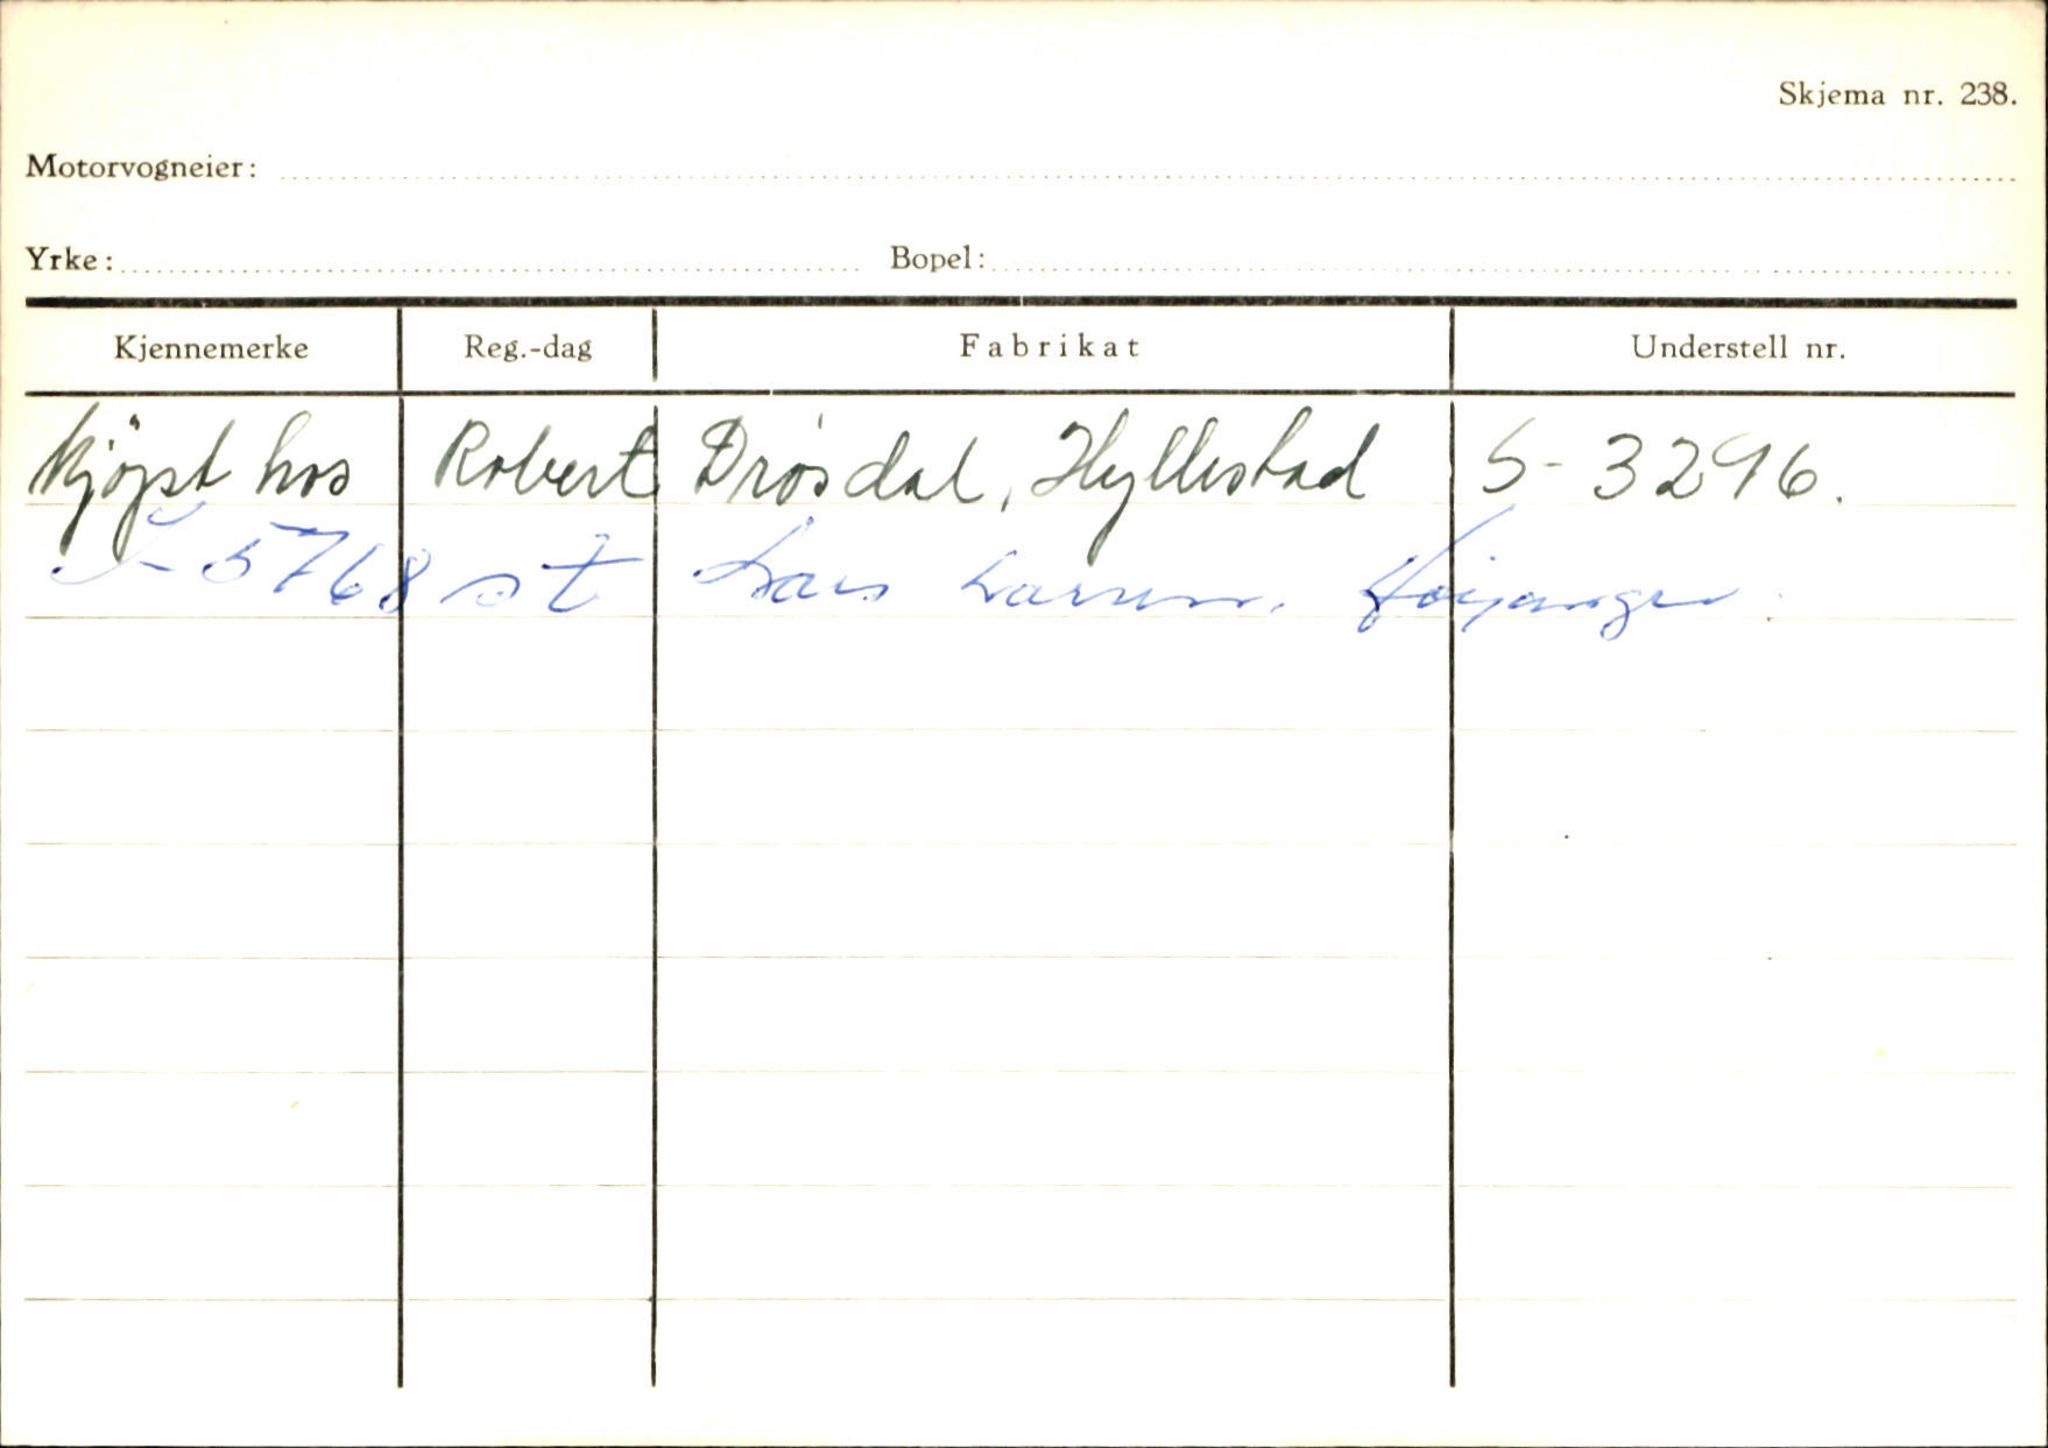 Skjema nr. 238.
Motorvogneier:
Yrke: Bopel:
Kjennemerke Reg.-dag Fabrikat Understell nr.
Kjöpt hos Robert Drøsdal, Hyllestad S-3296.
S-5768 st Lars Larsen. Høyanger.